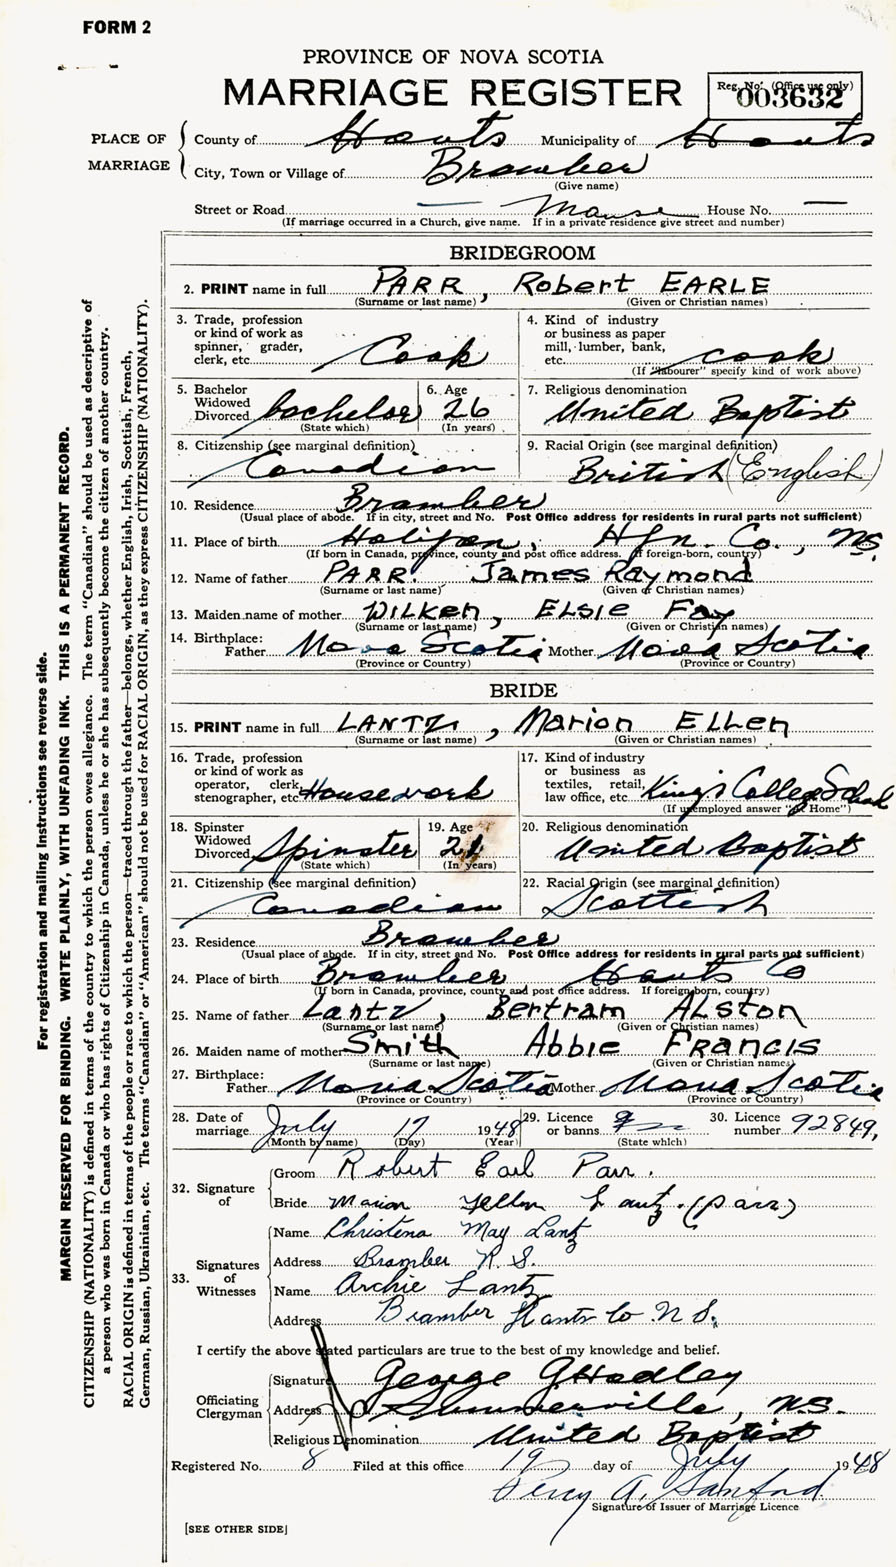 FORM 2
PROVINCE OF NOVA SCOTIA
MARRIAGE REGISTER
Reg. No. (Office use only)
003632
PLACE OF MARRIAGE
County of Hants Municipality of Hants
City, Town or Village of Bramber
(Give name)
Street or Road — Manse House No. —
(If marriage occurred in a Church, give name. If in a private residence give street and number)
BRIDEGROOM
2. PRINT name in full PARR, Robert EARLE
(Surname or last name) (Given or Christian names)
3. Trade, profession or kind of work as spinner, grader, clerk, etc. Cook
4. Kind of industry or business as paper mill, lumber, bank, etc. cook
(If "labourer" specify kind of work above)
5. Bachelor Widowed Divorced bachelor
(State which)
6. Age 26
(In years)
7. Religious denomination United Baptist
8. Citizenship (see marginal definition) Canadian
9. Racial Origin (see marginal definition) British (English)
10. Residence Bramber
(Usual place of abode. If in city, street and No. Post Office address for residents in rural parts not sufficient)
11. Place of birth Halifax, Hfx. Co., NS.
(If born in Canada, province, county and post office address. If foreign-born, country)
12. Name of father PARR. James Raymond
(Surname or last name) (Given or Christian names)
13. Maiden name of mother WILKEN, ELSIE Fay
(Surname or last name) (Given or Christian names)
14. Birthplace: Father Nova Scotia Mother Nova Scotia
(Province or Country) (Province or Country)
BRIDE
15. PRINT name in full LANTZ, Marion ELLEN
(Surname or last name) (Given or Christian names)
16. Trade, profession or kind of work as operator, clerk, stenographer, etc. Housework
17. Kind of industry or business as textiles, retail, law office, etc. King's College School
(If unemployed answer "at Home")
18. Spinster Widowed Divorced Spinster
(State which)
19. Age 21
(In years)
20. Religious denomination United Baptist
21. Citizenship (see marginal definition) Canadian
22. Racial Origin (see marginal definition) Scottish
23. Residence Bramber
(Usual place of abode. If in city, street and No. Post Office address for residents in rural parts not sufficient)
24. Place of birth Bramber Hants Co
(If born in Canada, province, county and post office address. If foreign-born, country)
25. Name of father Lantz, Bertram ALSTON
(Surname or last name) (Given or Christian names)
26. Maiden name of mother Smith Abbie FRANCIS
(Surname or last name) (Given or Christian names)
27. Birthplace: Father Nova Scotia Mother Nova Scotia
(Province or Country) (Province or Country)
28. Date of marriage July 17 1948
(Month by name) (Day) (Year)
29. Licence or banns
(State which)
30. Licence number 92849,
32. Signature of
Groom Robert Earl Parr.
Bride Marion Yellen Lantz. (Parr)
33. Signatures of Witnesses
Name Christena May Lantz
Address Bramber N.S.
Name Archie Lantz
Address Bramber Hants Co N.S.
I certify the above stated particulars are true to the best of my knowledge and belief.
Officiating Clergyman
Signature George G Hadley
Address Summerville, N.S.
Religious Denomination United Baptist
Registered No. 8 Filed at this office 19 day of July 1948
Percy A. Sanford
Signature of Issuer of Marriage Licence
[SEE OTHER SIDE]
For registration and mailing instructions see reverse side.
MARGIN RESERVED FOR BINDING. WRITE PLAINLY, WITH UNFADING INK. THIS IS A PERMANENT RECORD.
CITIZENSHIP (NATIONALITY) is defined in terms of the country to which the person owes allegiance. The term "Canadian" should be used as descriptive of
a person who was born in Canada or who has rights of Citizenship in Canada, unless he or she has subsequently become the citizen of another country.
RACIAL ORIGIN is defined in terms of the people or race to which the person—traced through the father—belongs, whether English, Irish, Scottish, French,
German, Russian, Ukrainian, etc. The terms "Canadian" or "American" should not be used for RACIAL ORIGIN, as they express CITIZENSHIP (NATIONALITY).